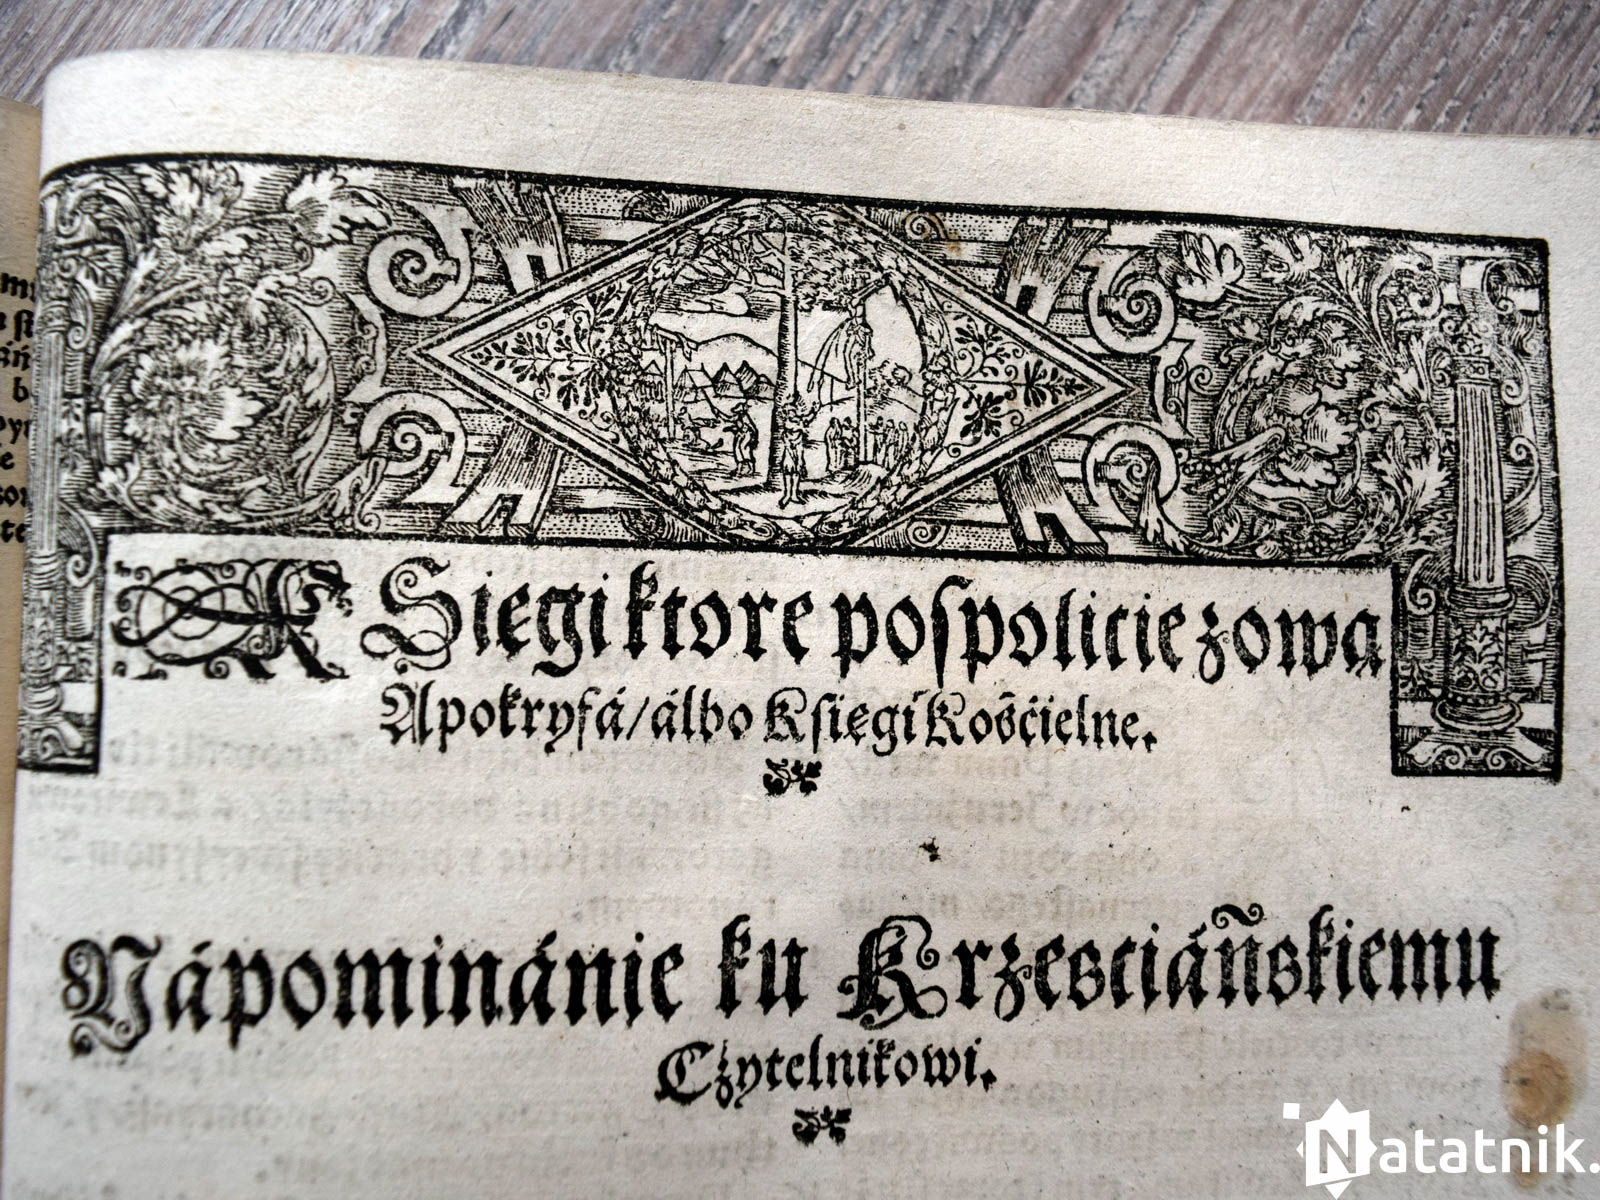 KSięgi ktore pospolicie zową
Apokryfá/ álbo Kſięgi Kośćielne.
Nápominánie ku Krzesciáńskiemu
Cżytelnikowi.
Natatnik.